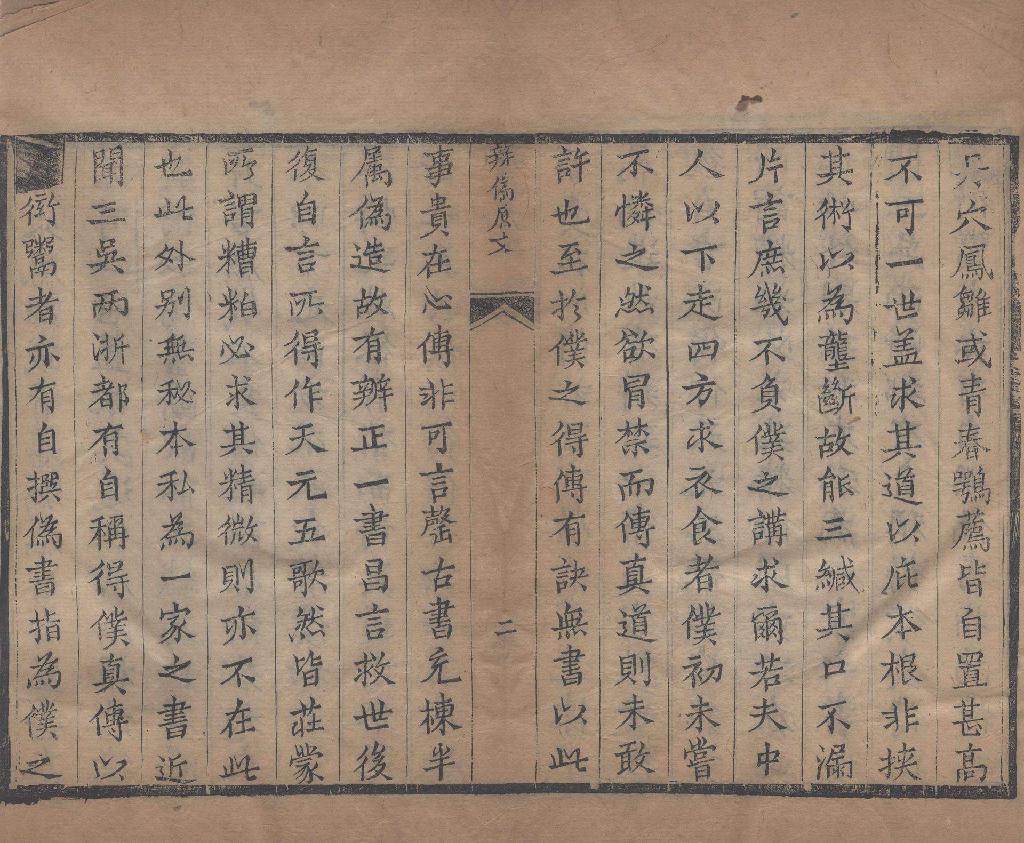 穴鳳雛或青春鶚薦皆自置甚高
不可一世盖求其道以庇本根非挾
其術以為壟斷故能三緘其口不漏
片言庶幾不負僕之講求爾若夫中
人以下走四方求衣食者僕初未嘗
不憐之然欲冒禁而傳真道則未敢
許也至扵僕之得傳有訣無書以此
辨偽原文
二
事貴在心傳非可言罄古書充棟半
属偽造故有辨正一書昌言救世後
復自言所得作天元五歌然皆莊蒙
所謂糟粕必求其精微則亦不在此
也此外别無秘本私為一家之書近
聞三吳兩浙都有自稱得僕真傳以
衒鬻者亦有自撰偽書指為僕之